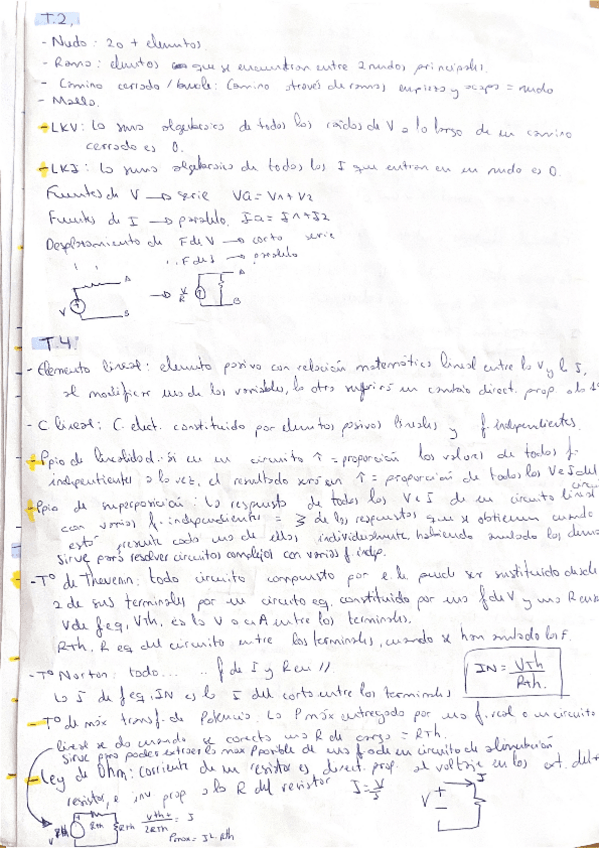 T.2.
- Nudo: 2 o + elementos.
- Rama: elmtos que se encuentran entre 2 nudos principales.
- Camino cerrado / bucle: Camino através de ramas empieza y acaba = nudo
- Malla.
- LKV: La suma algebraica de todas las caídas de V a lo largo de un camino
cerrado es 0.
- LKI: La suma algebraica de todas las I que entran en un nudo es 0.
Fuentes de V → serie Va = V1 + V2
Fuentes de I → paralelo. Ia = I1 + I2
Desplazamiento de F de V → corto serie
" " F de I → paralelo
A
B
V
V/R
A
B
T.4.
- Elemento lineal: elemento pasivo con relación matemática lineal entre la V y la I,
al modificar una de las variables, la otra sufrirá un cambio direct. prop. a la
- C. lineal: C. elect. constituido por elmtos pasivos lineales y f. independientes.
- Ppio de linealidad: si en un circuito ↑ = proporción los valores de todas f.
independientes a la vez, el resultado será un ↑ = proporción de todas las V e I del
circuito
- Ppio de superposición: La respuesta de todas las V e I de un circuito lineal
con varias f. independientes = Σ de las respuestas que se obtienen cuando
está presente cada una de ellas individualmente, habiendo anulado las demás
sirve para resolver circuitos complejos con varias f. indp.
- Tº de Thevenin: todo circuito compuesto por e.l. puede ser sustituido desde
2 de sus terminales por un circuito eq. constituido por una f de V y una R en
V de f eq, Vth, es la V a c.A entre los terminales.
Rth, R eq del circuito entre los terminales, cuando se han anulado las F.
- Tº Norton: todo... .. f de I y R en //.
La I de f eq, IN es la I del corto entre los terminales
IN = Vth / Rth.
- Tº de máx transf. de Potencia. La P máx entregada por una f. real o un circuito
lineal se da cuando se conecta una R de carga = Rth.
sirve para poder extraer la max P posible de una f. o de un circuito de alimentación
- Ley de Ohm: corriente de un resistor es direct. prop. al voltaje en los ext. del
resistor, e inv prop a la R del resistor I =
Rth
Rth
Vth / 2Rth = I
Pmax = I² · Rth
V
+
-
I